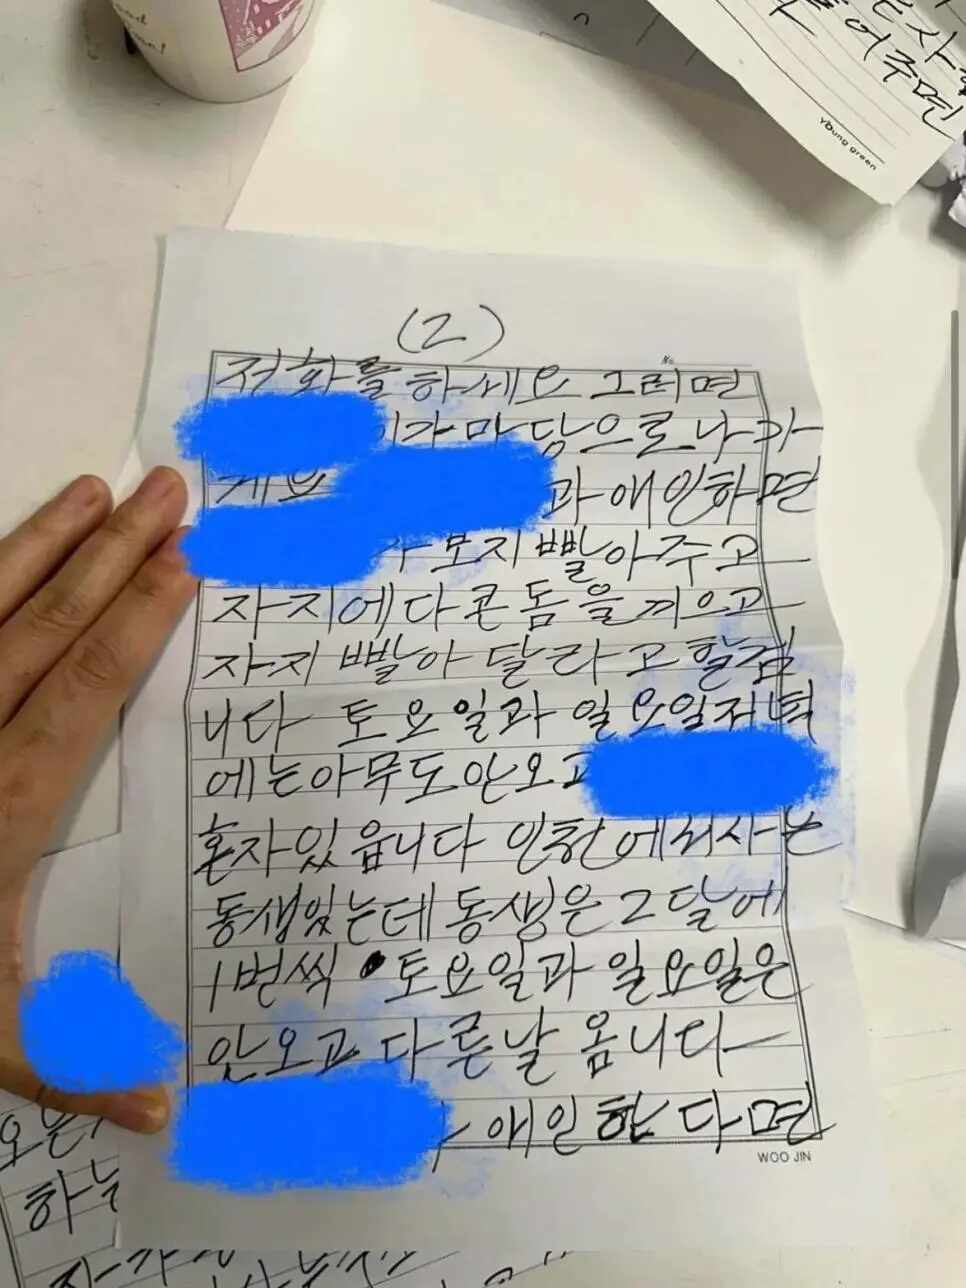 young green
(2)
No.
전화를 하세요 그러면
가 마당으로 나 가
과 애인하면
보지 빨아 주고
자지에다 콘돔을 끼으고
자지 빨아 달라고 할겁
니다 토요일과 일요일저녁
에는 아무도 안오고
혼자 있읍니다 인천에서 사는
동생있는데 동생은 2달에
1번씩 토요일과 일요일은
안오고 다른날 옵니다
애인한다면
WOO JIN